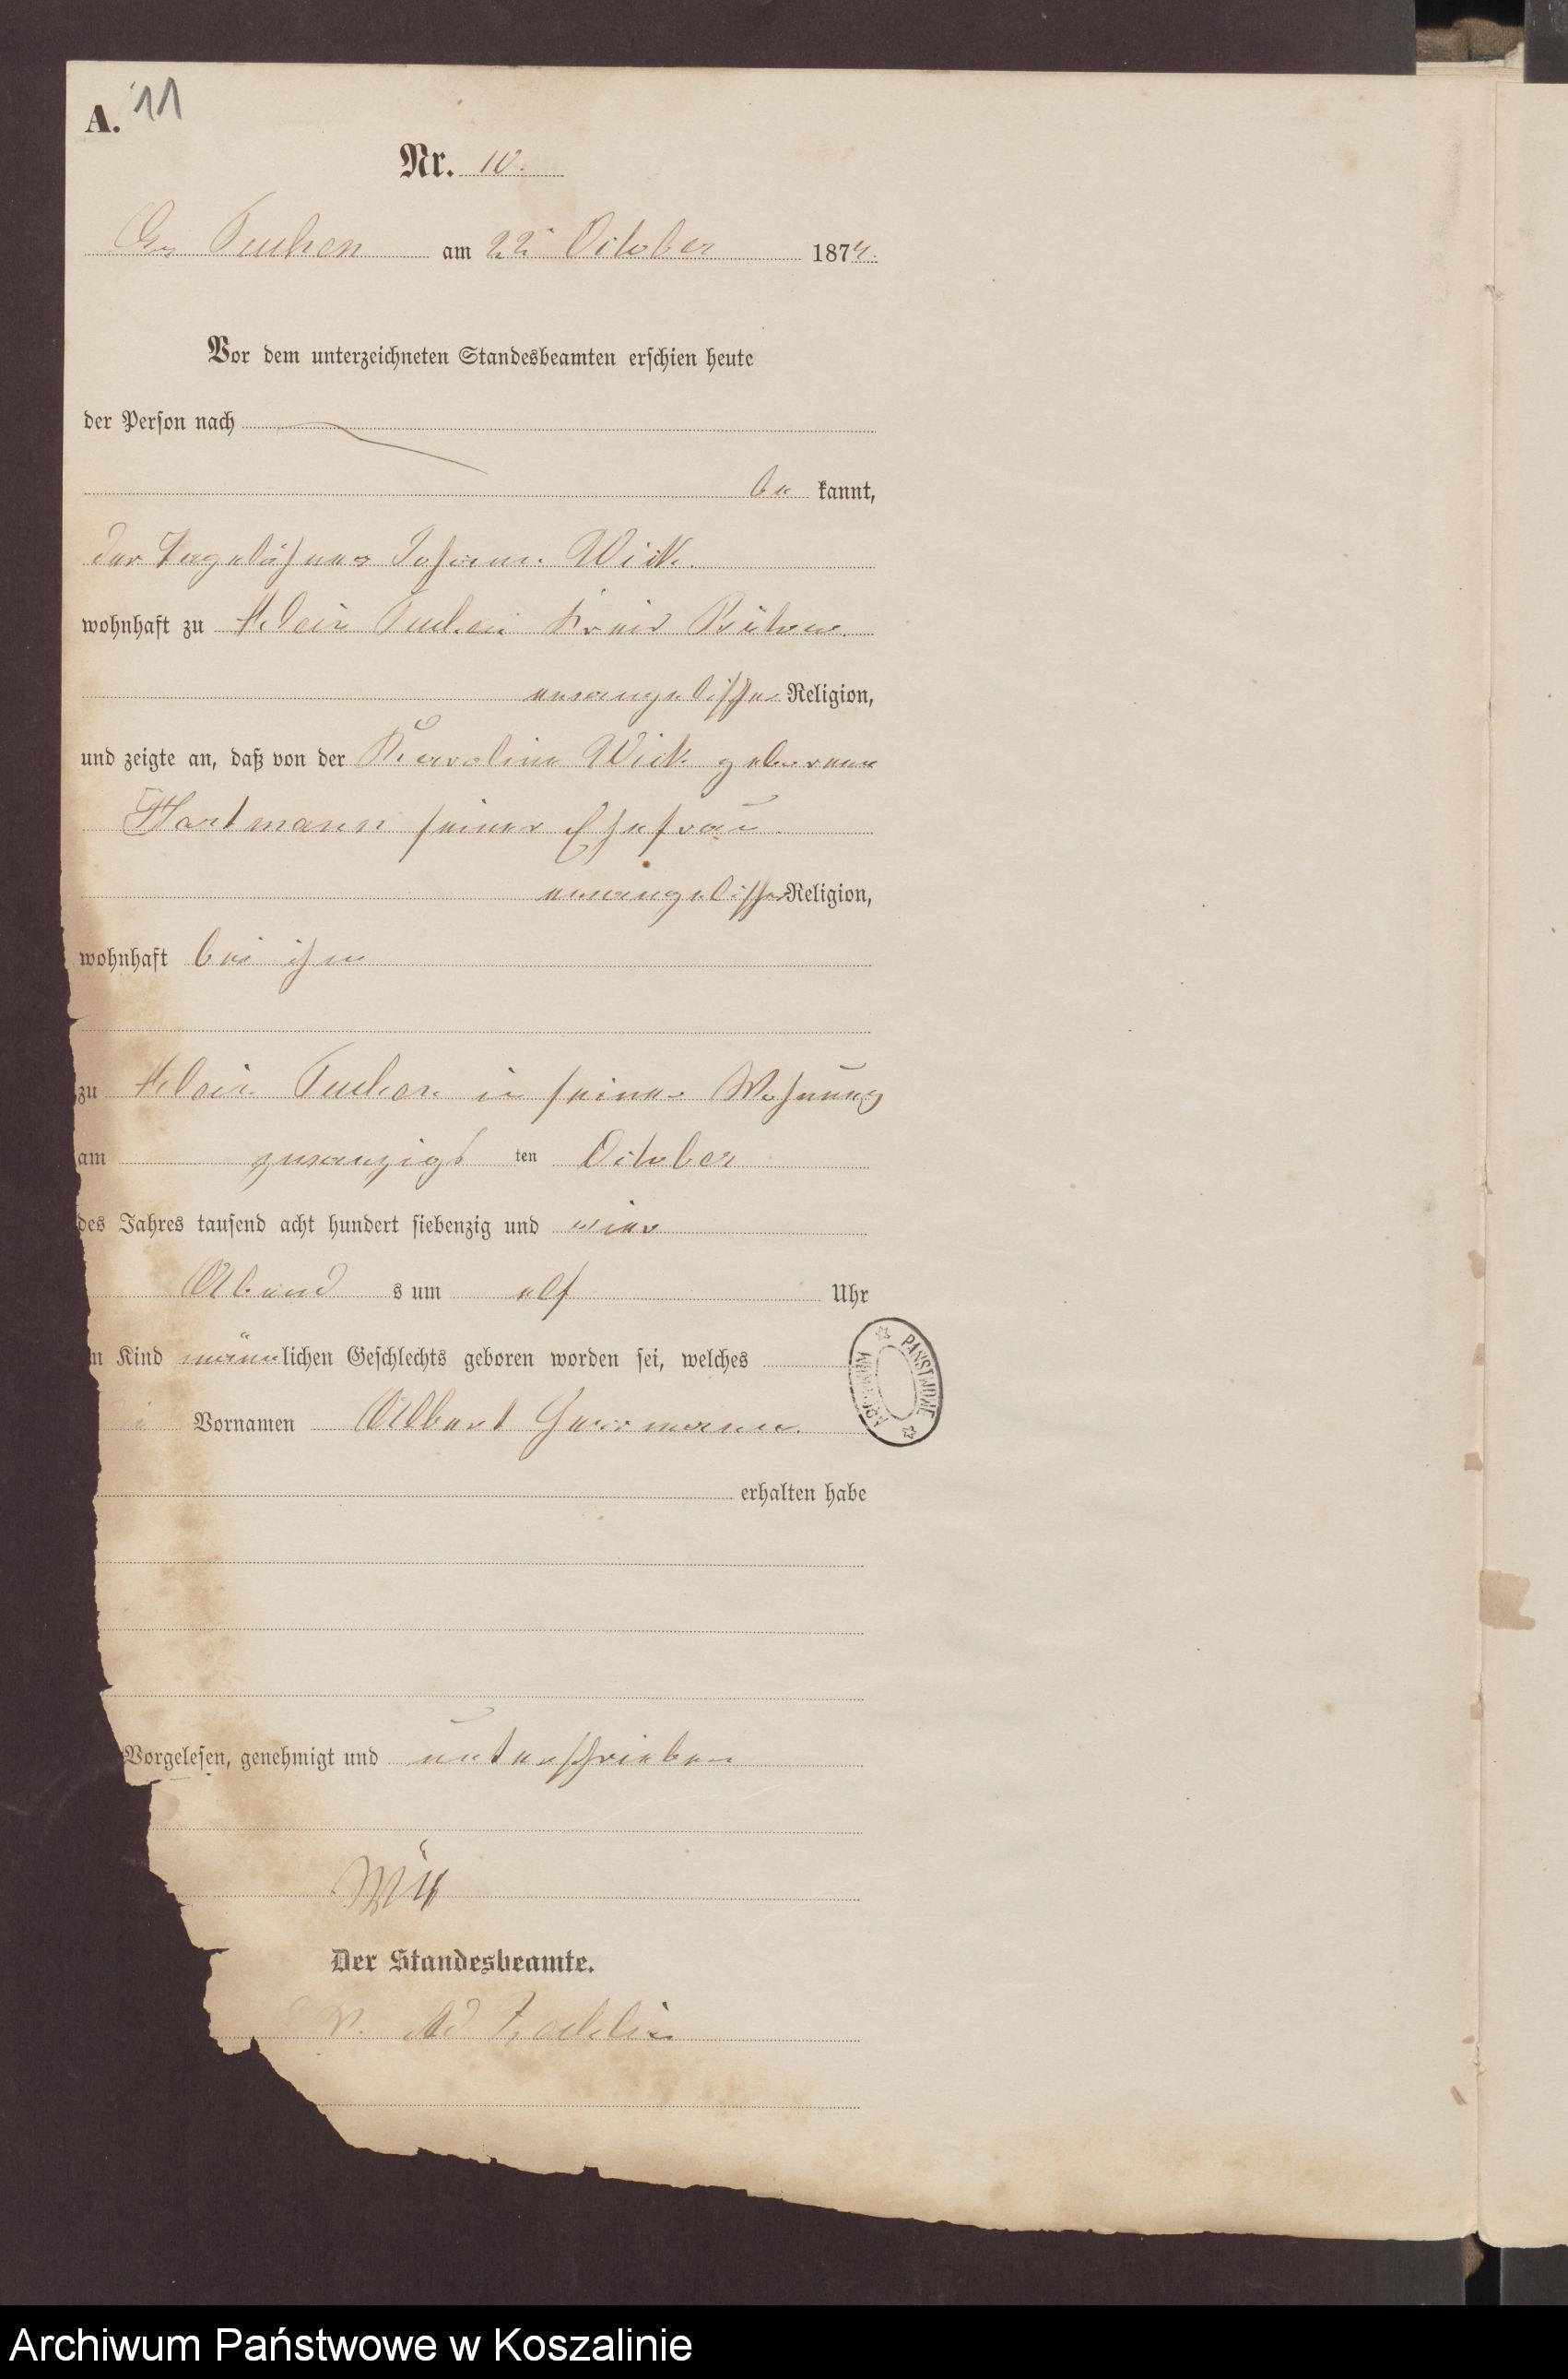 A. 11
Nr. 10.
Gr Tuchen am 22 October 1874.
Vor dem unterzeichneten Standesbeamten erschien heute
der Person nach
be kannt,
der Tagelöhner Johann Wick
wohnhaft zu Klein Tuchen Kreis Bütow
evangelischer Religion,
und zeigte an, daß von der Karoline Wick geborene
Hartmann seiner Ehefrau
evangelischer Religion,
wohnhaft bei ihm
zu Klein Tuchen in seiner Wohnung
am zwanzigs ten October
des Jahres tausend acht hundert siebenzig und vier
Abend s um elf Uhr
n Kind männlichen Geschlechts geboren worden sei, welches
Vornamen Albert Herrmann
erhalten habe
Vorgelesen, genehmigt und unterschrieben
Wick
Der Standesbeamte.
ARCHIWUM PAŃSTWOWE
Archiwum Państwowe w Koszalinie